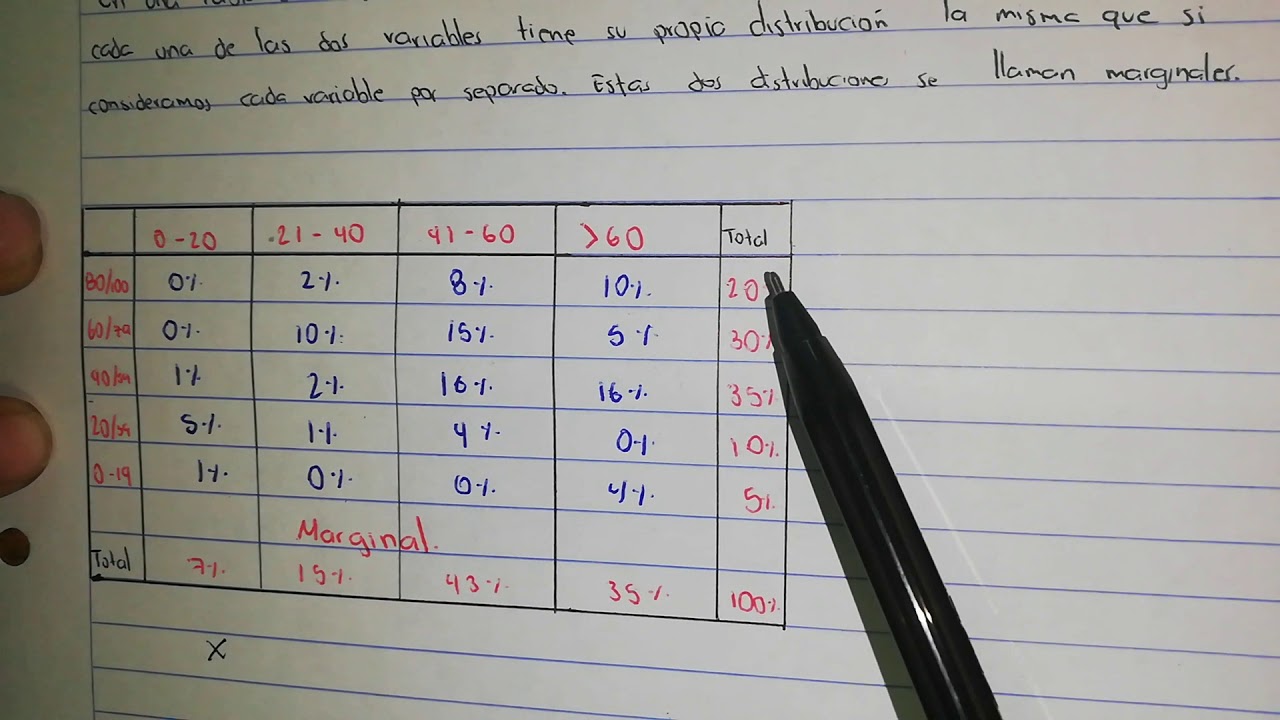 cada una de las dos variables tiene su propia distribución la misma que si
consideramos cada variable por separado. Estas dos distribuciones se llaman marginales.
0-20 21-40 41-60 >60 Total
80/100 0% 2% 8% 10% 20
60/79 0% 10% 15% 5% 30%
40/59 1% 2% 16% 16% 35%
20/39 5% 1% 4% 0% 10%
0-19 1% 0% 0% 4% 5%
Marginal.
Total 7% 15% 43% 35% 100%
X